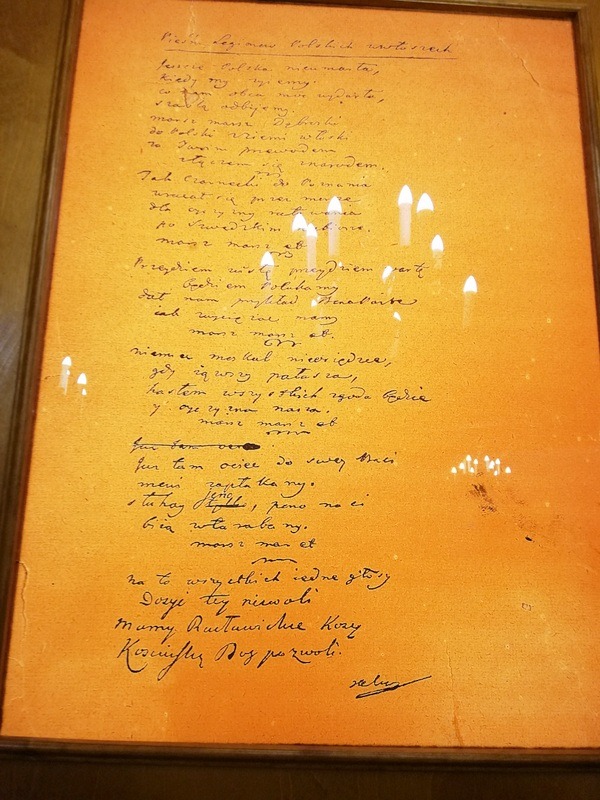 Pieśń Legionów Polskich we Włoszech
Jeszcze Polska nieumarła,
kiedy my żyiemy.
co nam obca moc wydarła,
szablą odbijemy.
marsz marsz Dąbrski
do Polski z ziemi włoski
za Twoim przewodem
złączem się z narodem.
Jak Czarnecki do Poznania
wracał się przez morze
dla oyczyzny ratowania
po Szwedzkim rozbiorze.
marsz marsz et
Przeydziem wisłę przeydziem wartę
będziem Polakamy
dał nam przykład Bonaparte
jak zwyciężać mamy
marsz marsz et.
niemiec moskal nieosiędzie,
gdy iąwszy pałasza,
hasłem wszystkich zgoda będzie
y oyczyzna nasza.
marsz marsz et
Już tam
Już tam ociec do swey Basi
mówi zapłakany.
słuchay jeno, pono nasi
biią w tarabany.
marsz mar et
na to wszystkich iedne głosy
Dosyć tey niewoli
mamy Racławickie Kosy
Kościuszkę Bog pozwoli.